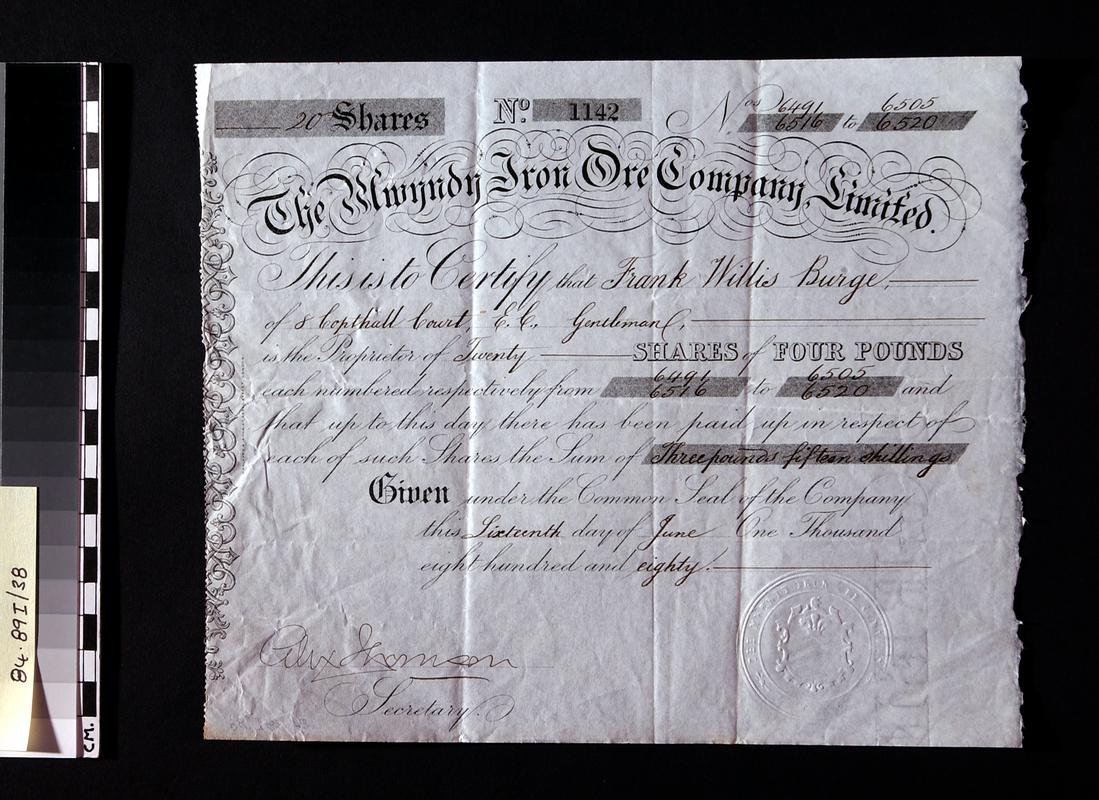 20 Shares Nº 1142 Nos 6491 6505
6516 to 6520
The Mwyndy Iron Ore Company, Limited.
This is to Certify that Frank Willis Burge,
of 8 Copthall Court, E.C., Gentleman,
is the Proprietor of Twenty SHARES of FOUR POUNDS
6491 6505
each numbered respectively from 6516 to 6520 and
that up to this day there has been paid up in respect of
each of such Shares the Sum of Three pounds fifteen shillings
Given under the Common Seal of the Company
this Sixteenth day of June One Thousand
eight hundred and eighty.
Alex Thomson
Secretary.
84.89I/38
CM.